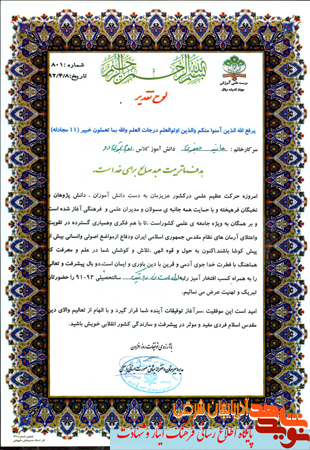 بسم الله الرحمن الرحیم
شماره: ۸۰۱
تاریخ: ۹۲/۴/۸
لوح تقدیر
یرفع الله الذین آمنوا منکم والذین اوتوالعلم درجات العلم والله بما تعملون خبیر (۱۱ مجادله)
سرکار خانم: دانش آموز کلاس
هدف ما تربیت عبد صالح برای خداست.
امروزه حرکت عظیم علمی درکشور عزیزمان به دست دانش آموزان ، دانش پژوهان و
نخبگان فرهیخته و با حمایت همه جانبه ی مسولان و مدیران علمی و فرهنگی آغاز شده است
و بر همگان به ویژه جامعه ی علمی کشوراست ،تا با هم فکری وهمیاری گسترده در تقویت
واعتلای آرمان های نظام مقدس جمهوری اسلامی ایران ودفاع ازمواضع اصولی وانسانی بیش از
پیش کوشا باشند.اکنون به حول و قوه الهی ،تلاش و کوشش شما در علم و معرفت که
هماهنگ با فطرت خدا جوی آدمی و قرین با دین باوری و ایمان است،دو بال پیشرفت و تعالی
را به همراه کسب افتخار آمیز رتبه سالتحصیلی ۹۲-۹۱ را حضورتان
تبریک و تهنیت عرض می نمائیم.
امید است این موفقیت ،سرآغاز توفیقات آینده شما قرار گیرد و با الهام از تعالیم والای دین
مقدس اسلام فردی مفید و موثر در پیشرفت و سازندگی کشور انقلابی خویش باشید.
با آرزوی توفیقات روز افزون
نوید شاهد
آذربایجان شرقی
پایگاه اطلاع رسانی فرهنگ ایثار و شهادت